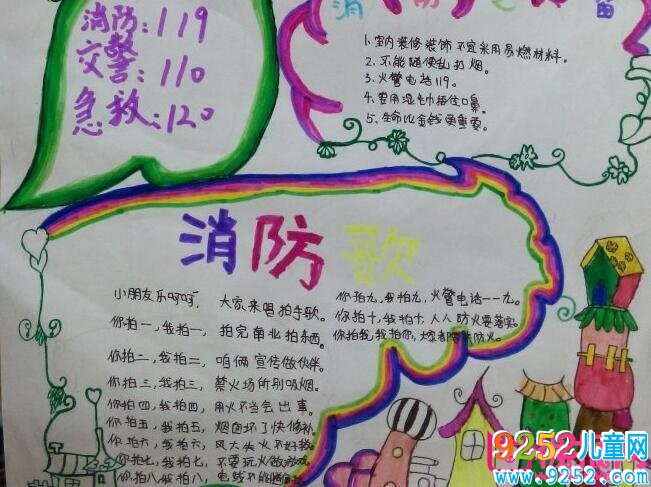 消防：119
交警：110
急救：120
消防
1.室内装修装饰不宜采用易燃材料。
2.不能随便乱扔烟。
3.火警电话119。
4.要用湿毛巾捂住口鼻。
5.生命比金钱更重要。
消防歌
小朋友乐呵呵，大家来唱拍手歌。
你拍一，我拍一，拍完南业拍东西。
你拍二，我拍二，咱俩宣传做伙伴。
你拍三，我拍三，禁火场所别吸烟。
你拍四，我拍四，用火不当会出事。
你拍五，我拍五，烟囱坏了快修补。
你拍六，我拍六，风大失火不好救。
你拍七，我拍七，不要玩火做游戏。
你拍八，我拍八，电线不能随
你拍九，我拍九，火警电话一一九。
你拍十，我拍十，人人防火要落实。
你拍我，我拍你，大家都防火。
9252儿童网
www.9252.com